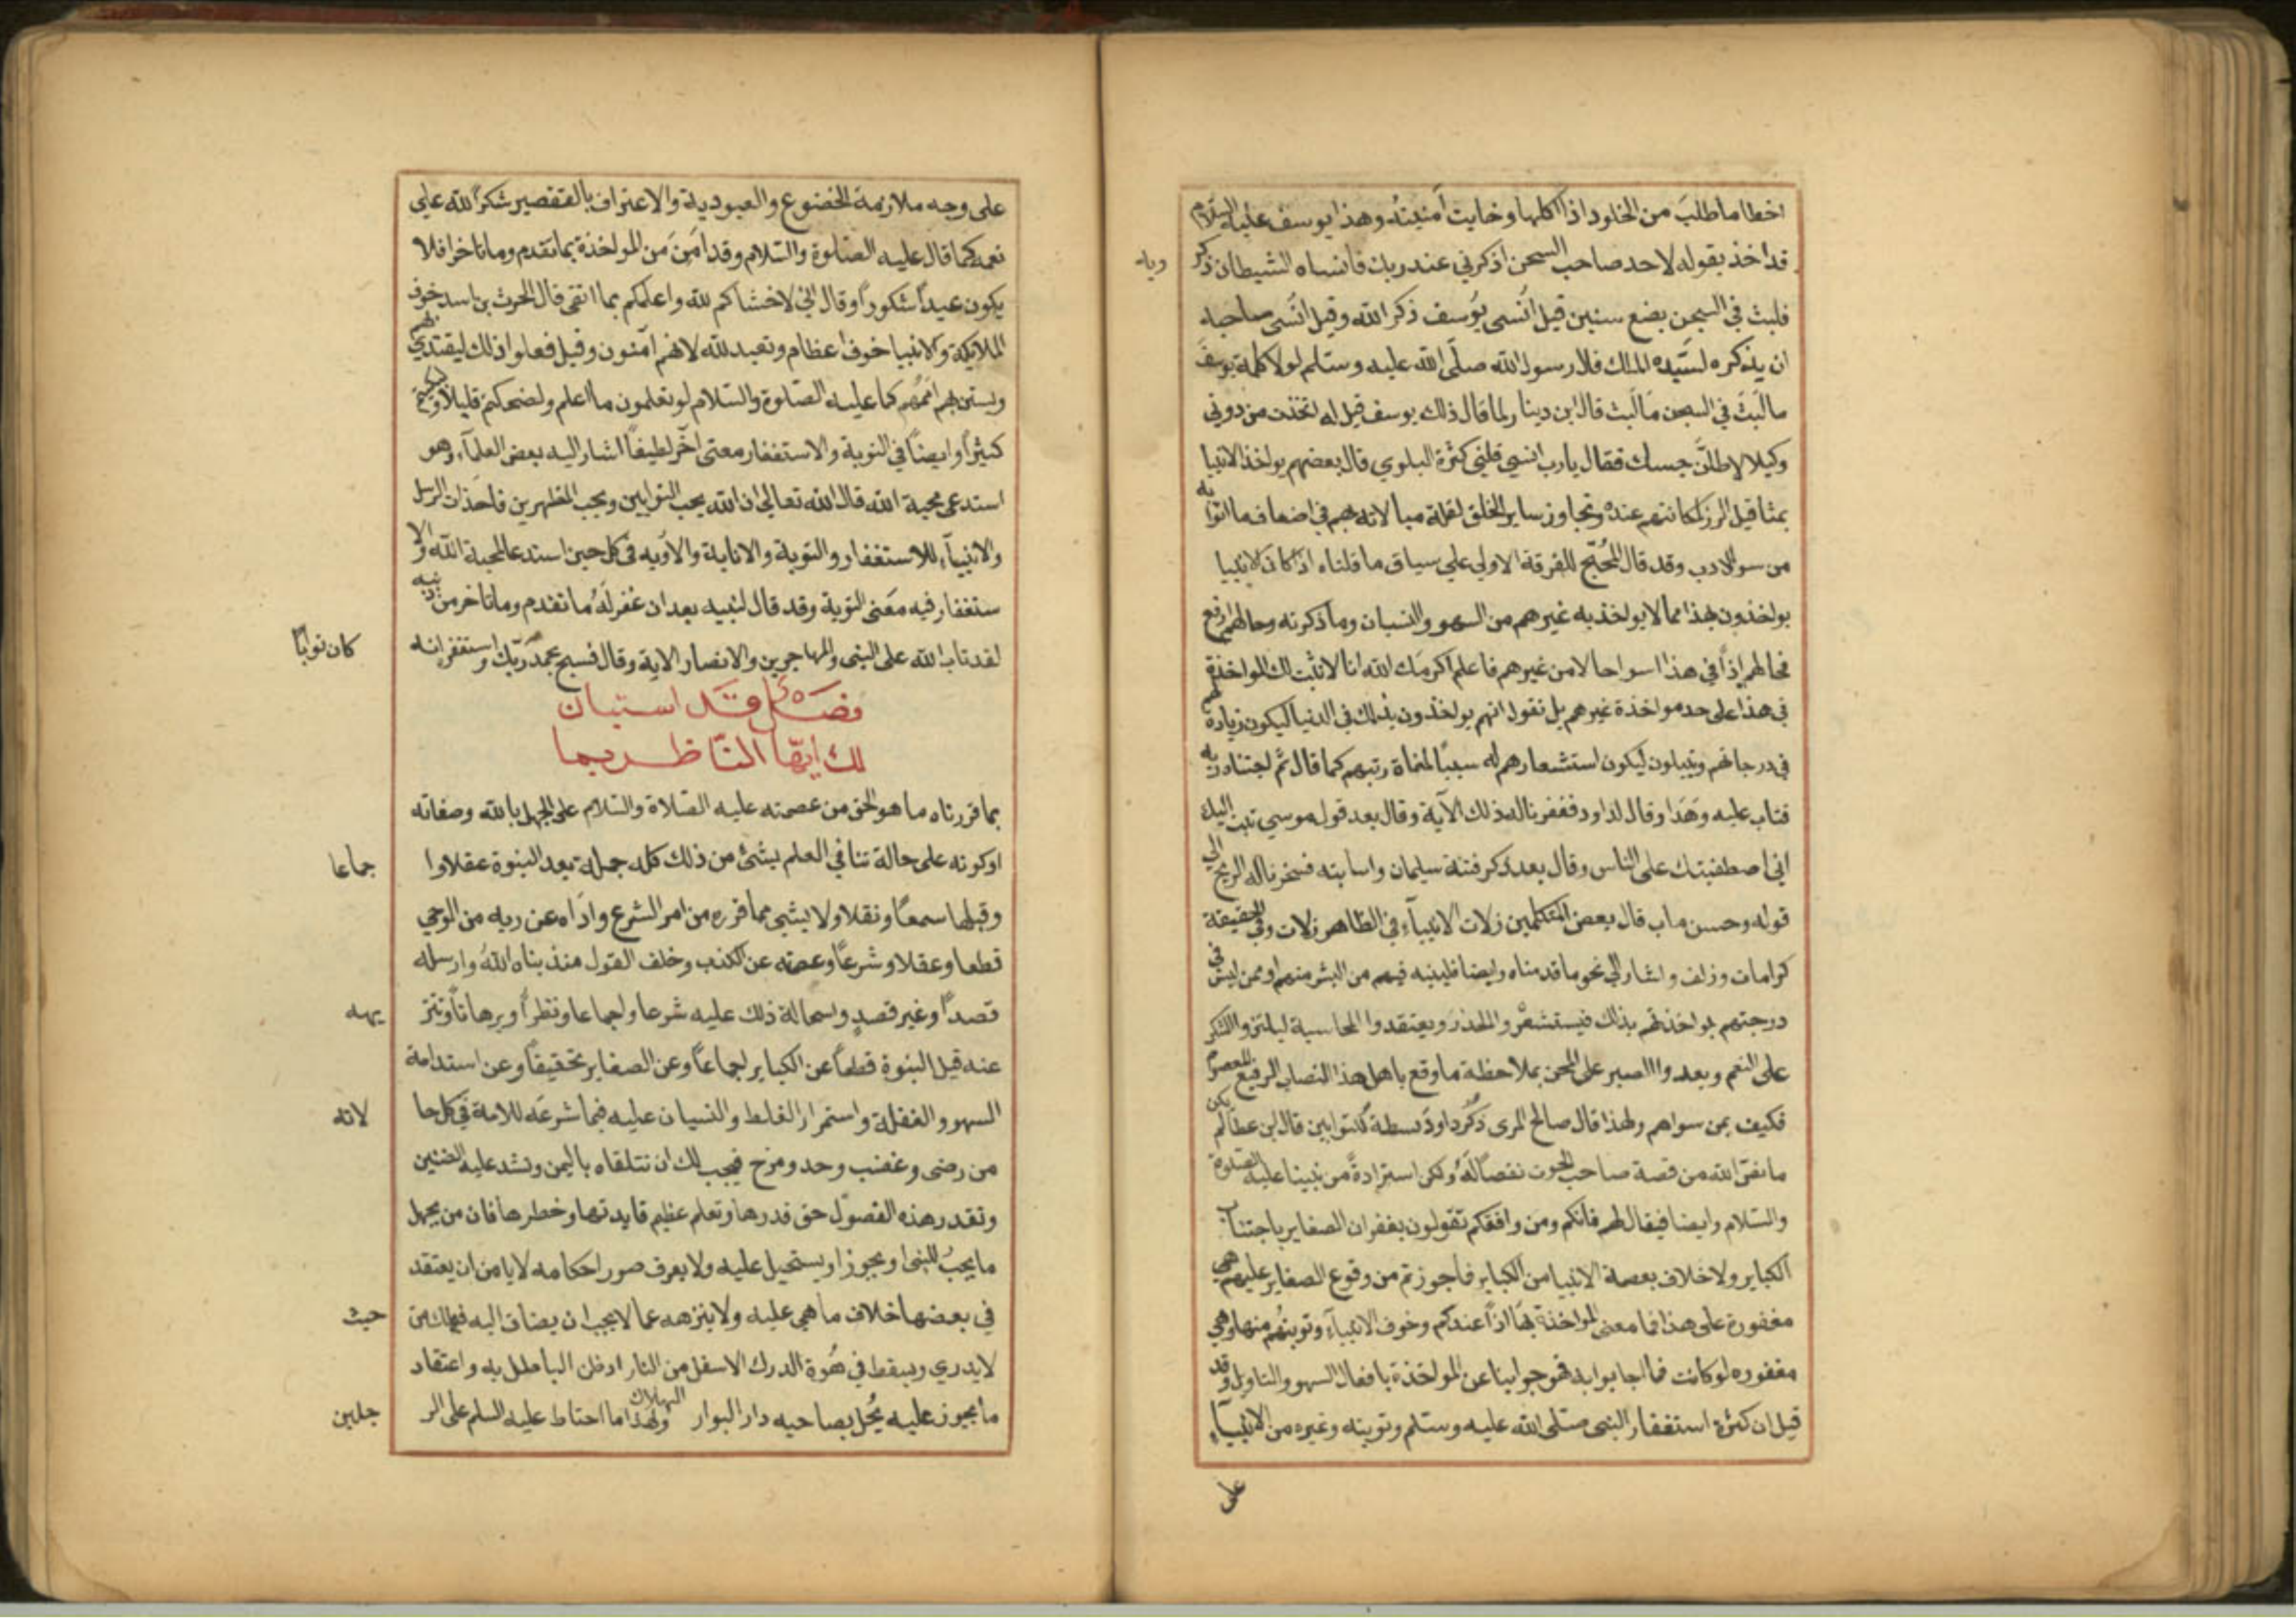 اخطا ما طلب من الخلود اذا اكلها وخابت امنيته وهذا يوسف عليه السلام
قد اخذ بقوله لاحد صاحب السجن اذكرني عند ربك فانساه الشيطان ذكر ربه
فلبث في السجن بضع سنين قيل انسى يوسف ذكر الله وقيل انسى صاحبه
ان يذكره لسيده الملك قال رسول الله صلى الله عليه وسلم لولا كلمة يوسف
ما لبث في السجن ما لبث قال ابن دينار لما قال ذلك يوسف قيل له اتخذت من دوني
وكيلا لاطلن حبسك فقال يا رب انسى قلبي كثرة البلوي قال بعضهم يواخذ الانبيا
بمثاقيل الرز لمكانتهم عنده وتجاوز ساير الخلق لقلة مبالاته بهم في اضعاف ما اتوا به
من سو الادب وقد قال المحتج للفرقة الاولي علي سياق ما قلناه اذا كان الانبيا
يواخذون بهذا مما لا يواخذ به غيرهم من السهو والنسيان وما ذكرته وحالهم ارفع
فحالهم اذا في هذا اسوا حالا من غيرهم فاعلم اكرمك الله انا لا نثبت لك المواخذة
في هذا على حد مواخذة غيرهم بل نقول انهم يواخذون بذلك في الدنيا ليكون زيادة لهم
في درجاتهم ويبتلون ليكون استشعارهم له سببا لمنماة رتبهم كما قال ثم اجتباه ربه
فتاب عليه وهدا وقال لداود فغفرنا له ذلك الآية وقال بعد قول موسي تبت اليك
اني اصطفيتك على الناس وقال بعد ذكر فتنة سليمان وانابته فسخرنا له الريح الي
قوله وحسن ماب قال بعض المتكلمين زلات الانبيآء في الظاهر زلات وفي الحقيقة
كرامات وزلف واشار الي نحو ما قدمناه وايضا فلينبه غيرهم من البشر منهم او ممن ليس في
درجتهم بمواخذتهم بذلك فيستشعروا الحذر ويعتقدوا المحاسبة ليلتزموا الشكر
على النعم ويعدوا الصبر على المحن بملاحظة ما وقع باهل هذا النصاب الرفيع المعصوم
فكيف بمن سواهم ولهذا قال صالح المرى ذكر داود بسطة للتوابين قال ابن عطا لم يكن
ما نص الله من قصة صاحب الحوت نقصا له ولكن استزادة من نبينا عليه الصلوة
والسلام وايضا فيقال لهم فانكم ومن وافقكم تقولون بغفران الصغاير باجتناب
الكباير ولا خلاف بعصمة الانبيا من الكباير فما جوزتم من وقوع الصغاير عليهم هي
مغفورة على هذا فما معنى المواخذة بها اذا عندكم وخوف الانبيآء وتوبتهم منها وهي
مغفوره لو كانت فما اجابوا به فهو جوابنا عن المواخذة بافعال السهو والتاويل وقد
قيل ان كثرة استغفار النبى صلى الله عليه وسلم وتوبته وغيره من الانبيآء
على
على وجه ملازمة الخضوع والعبودية والاعتراف بالتقصير شكرا لله علي
نعمه كما قال عليه الصلوة والسلام وقد امن من المواخذة بما تقدم وما تاخر افلا
يكون عبدا شكورا وقال اني لاخشاكم لله واعلمكم بما اتقى قال الحرث بن اسد خوف
الملايكة والانبيا خوف اعظام وتعبد لله لانهم آمنون وقيل فعلوا ذلك ليقتدي بهم
ويستن بهم اممهم كما عليه الصلوة والسلام لو تعلمون ما اعلم ولضحكتم قليلا ولبكيتم
كثيرا وايضا في التوبة والاستغفار معنى آخر لطيفا اشار اليه بعض العلمآء وهو
استدعى محبة الله قال الله تعالى ان الله يحب التوابين ويحب المتطهرين فاحذان الرسل
والانبيآء للاستغفار والتوبة والانابة والاوبه في كل حين استدعا لمحبة الله والا
ستغفار فيه معنى التوبة وقد قال لنبيه بعد ان غفر له ما تقدم وما تاخر من ذنبه
لقد تاب الله على النبى والمهاجرين والانصار الاية وقال فسبح بحمد ربك واستغفره انه كان توابا
فصل قد استبان
لك ايها الناظر بما
بما قررناه ما هو الحق من عصمته عليه الصلاة والسلام على الجهل بالله وصفاته
او كونه على حالة تنافي العلم بشئ من ذلك كله جملة بعد النبوة عقلا وا جماعا
وقبلها سمعا ونقلا ولا بشيء مما قرره من امر الشرع واداه عن ربه من الوحي
قطعا وعقلا وشرعا وعصمته عن الكذب وخلف القول منذ نباه الله وارسله
قصدا وغير قصد واستحالة ذلك عليه شرعا واجماعا ونظرا وبرهانا وتنز يهه
عنه قبل النبوة قطعا عن الكباير اجماعا وعن الصغاير تحقيقا وعن استدامة
السهو والغفلة واستمرار الغلط والنسيان عليه فيما شرعه للامة في كل حا لاته
من رضى وغضب وجد ومزح فيجب لك ان تتلقاه باليمن وتشد عليه الضنين
وتقدر هذه الفصول حق قدرها وتعلم عظيم فايدتها وخطرها فان من يجهل
ما يجب للنبى او يجوز او يستحيل عليه ولا يعرف صور احكامه لا يامن ان يعتقد
في بعضها خلاف ما هي عليه ولا ينزهه عما لا يجب ان يضاف اليه فيهلك من حيث
لا يدري ويسقط في هوة الدرك الاسفل من النار اذ ظن الباطل به واعتقاد
ما يجوز عليه يحل بصاحبه دار البوار الهلاك ولهذا ما احتاط عليه السلم على الر جلين